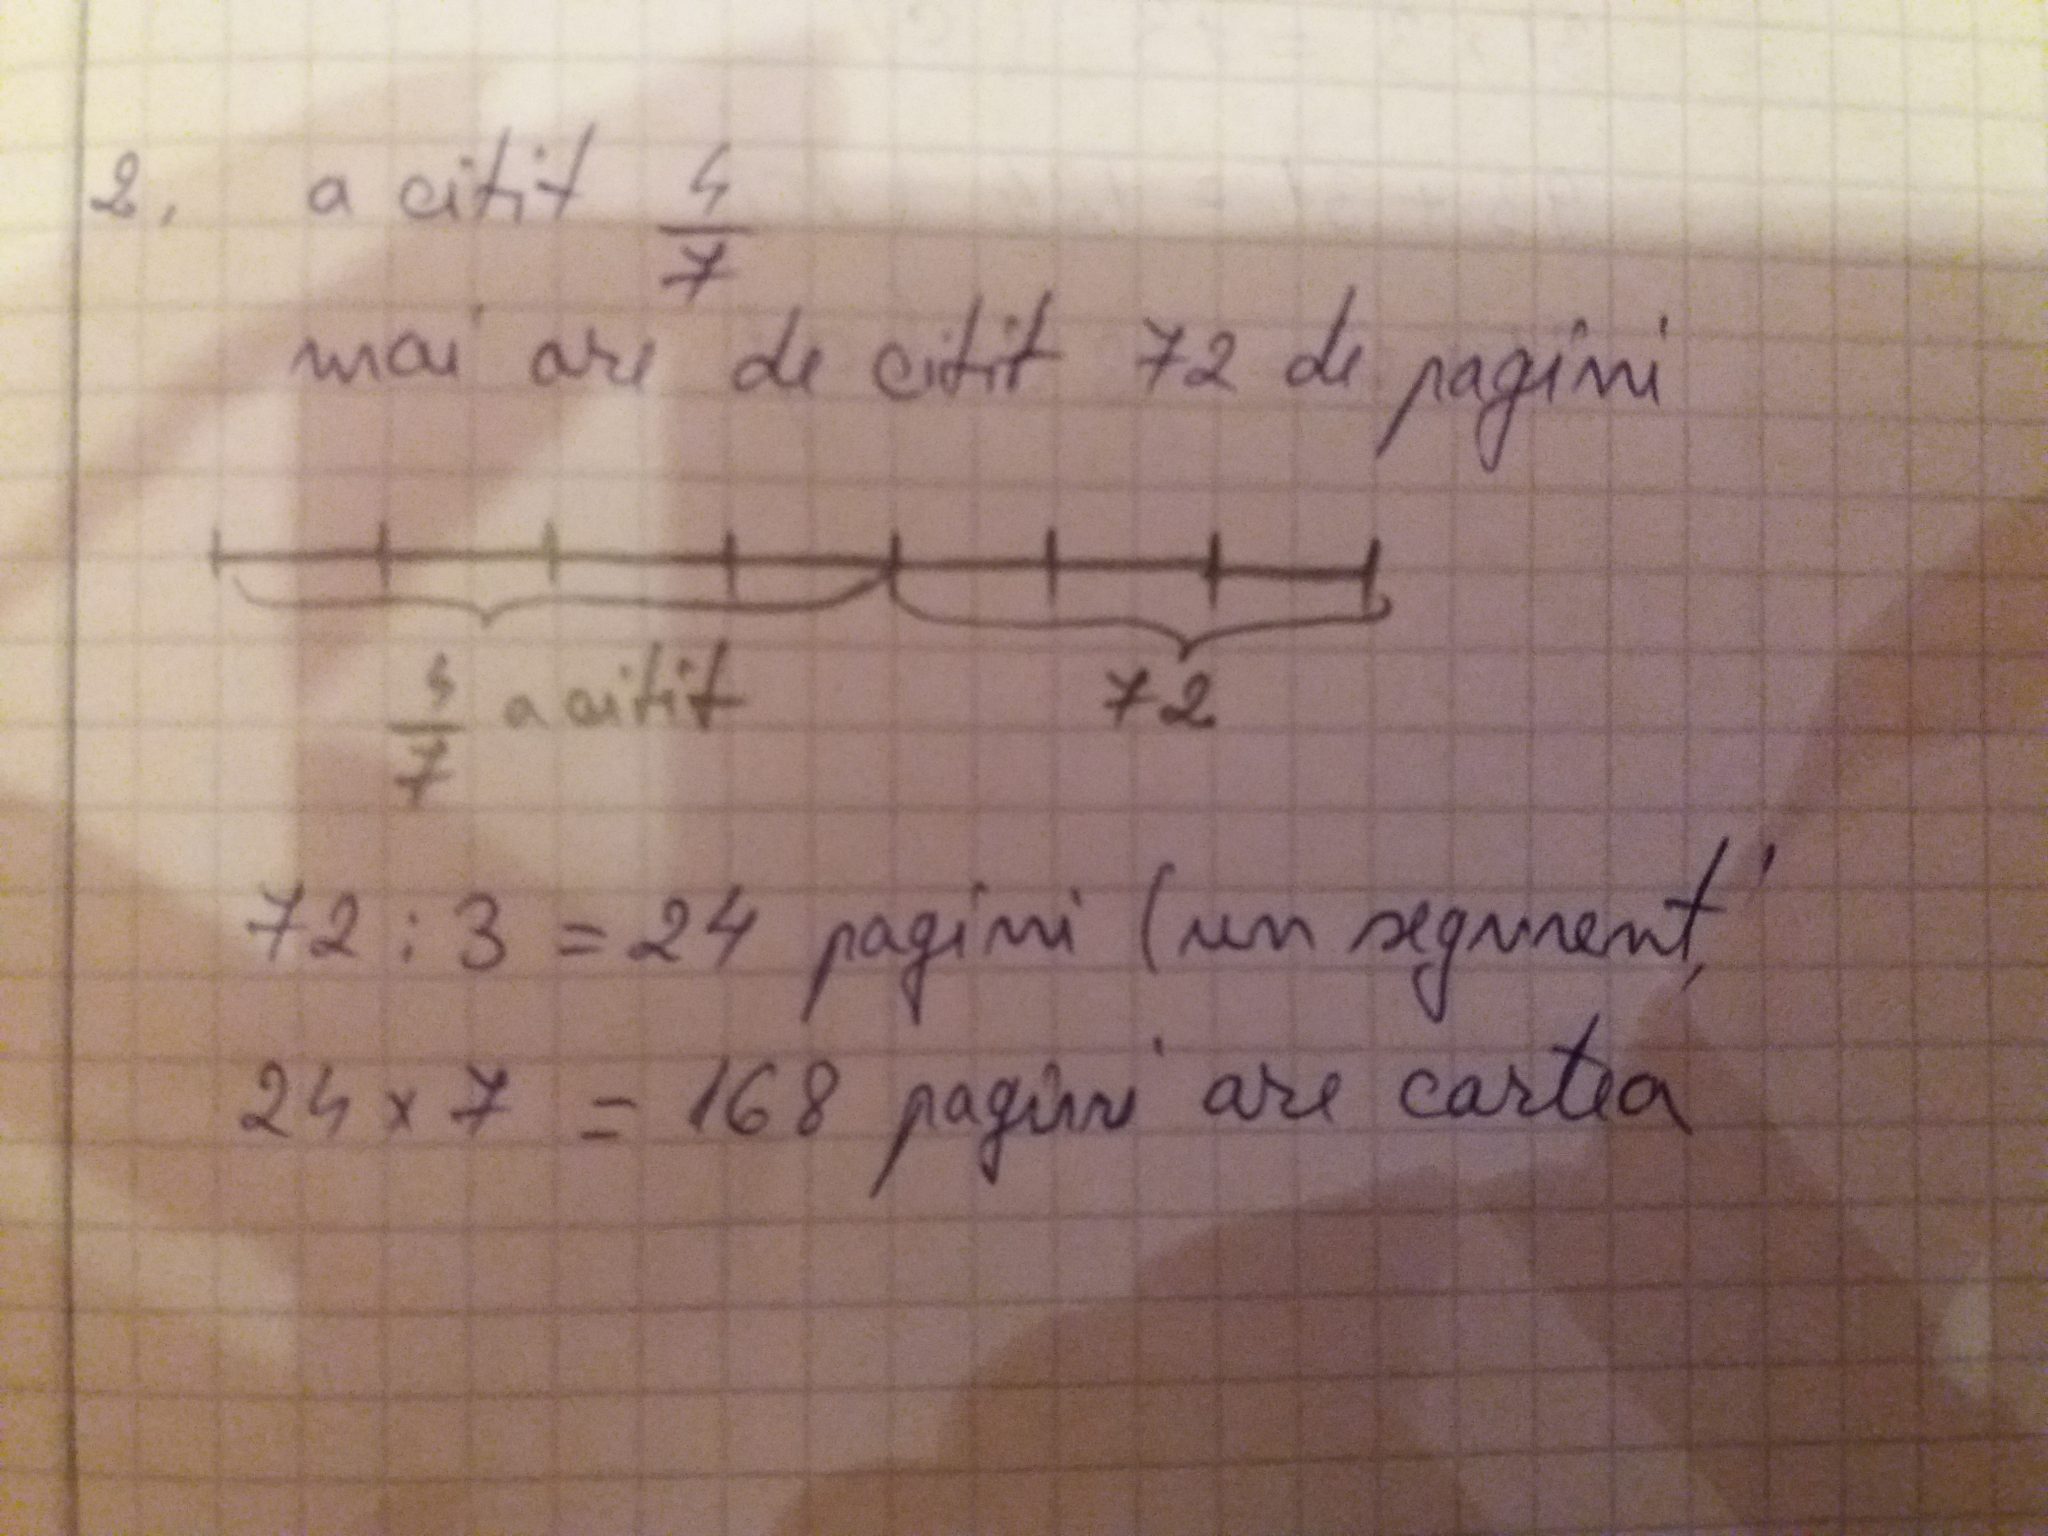 2. a citit 4/7
mai are de citit 72 de pagini
4/7 a citit 72
72 : 3 = 24 pagini (un segment)
24 x 7 = 168 pagini are cartea